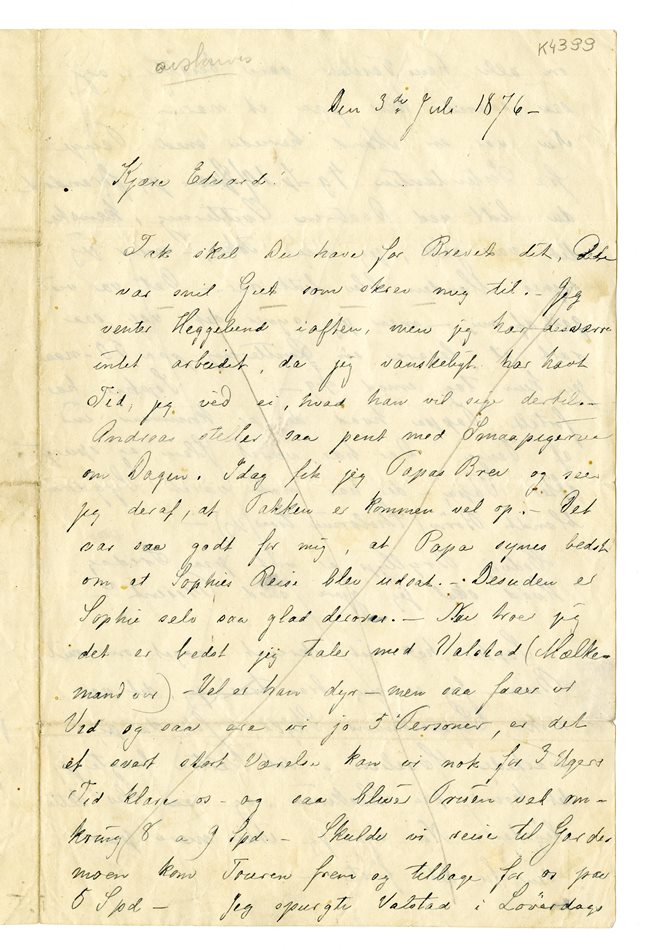 K4399
Den 3de Juli 1876 –
Kjære Edvard!
Tak skal Du have for Brevet dit, Dete
var snil Gut som skrev mig til. – Jeg
venter Heggelund iaften, men jeg har desværre
intet arbeidet, da jeg vanskeligt har havt
Tid, jeg véd ei, hvad han vil sige dertil. –
Andreas steller saa pent med Smaapigerne
om Dagen. Idag fik jeg Papas Brev og seer
jeg deraf, at Pakken er kommen vel op. – Det
var saa godt for mig, at Papa synes bedst
om at Sophies Reise blev udsat. – Desuden er
Sophie selv saa glad derover. – Nu troer jeg
det er bedst jeg taler med Valstad (Mælke-
mand vor) – Vel er han dyr – men saa faaer vi
Ved og saa ere vi jo 5 Personer, er det
et svært stort Værelse kan vi nok for 3 Ugers
Tid klare os – og saa bliver Prisen vel om-
kring 8 a 9 Spd. – Skulde vi reise til Garder
moen kom Touren frem og tilbage for os paa
5 Spd – Jeg spurgte Valstad i Løverdags